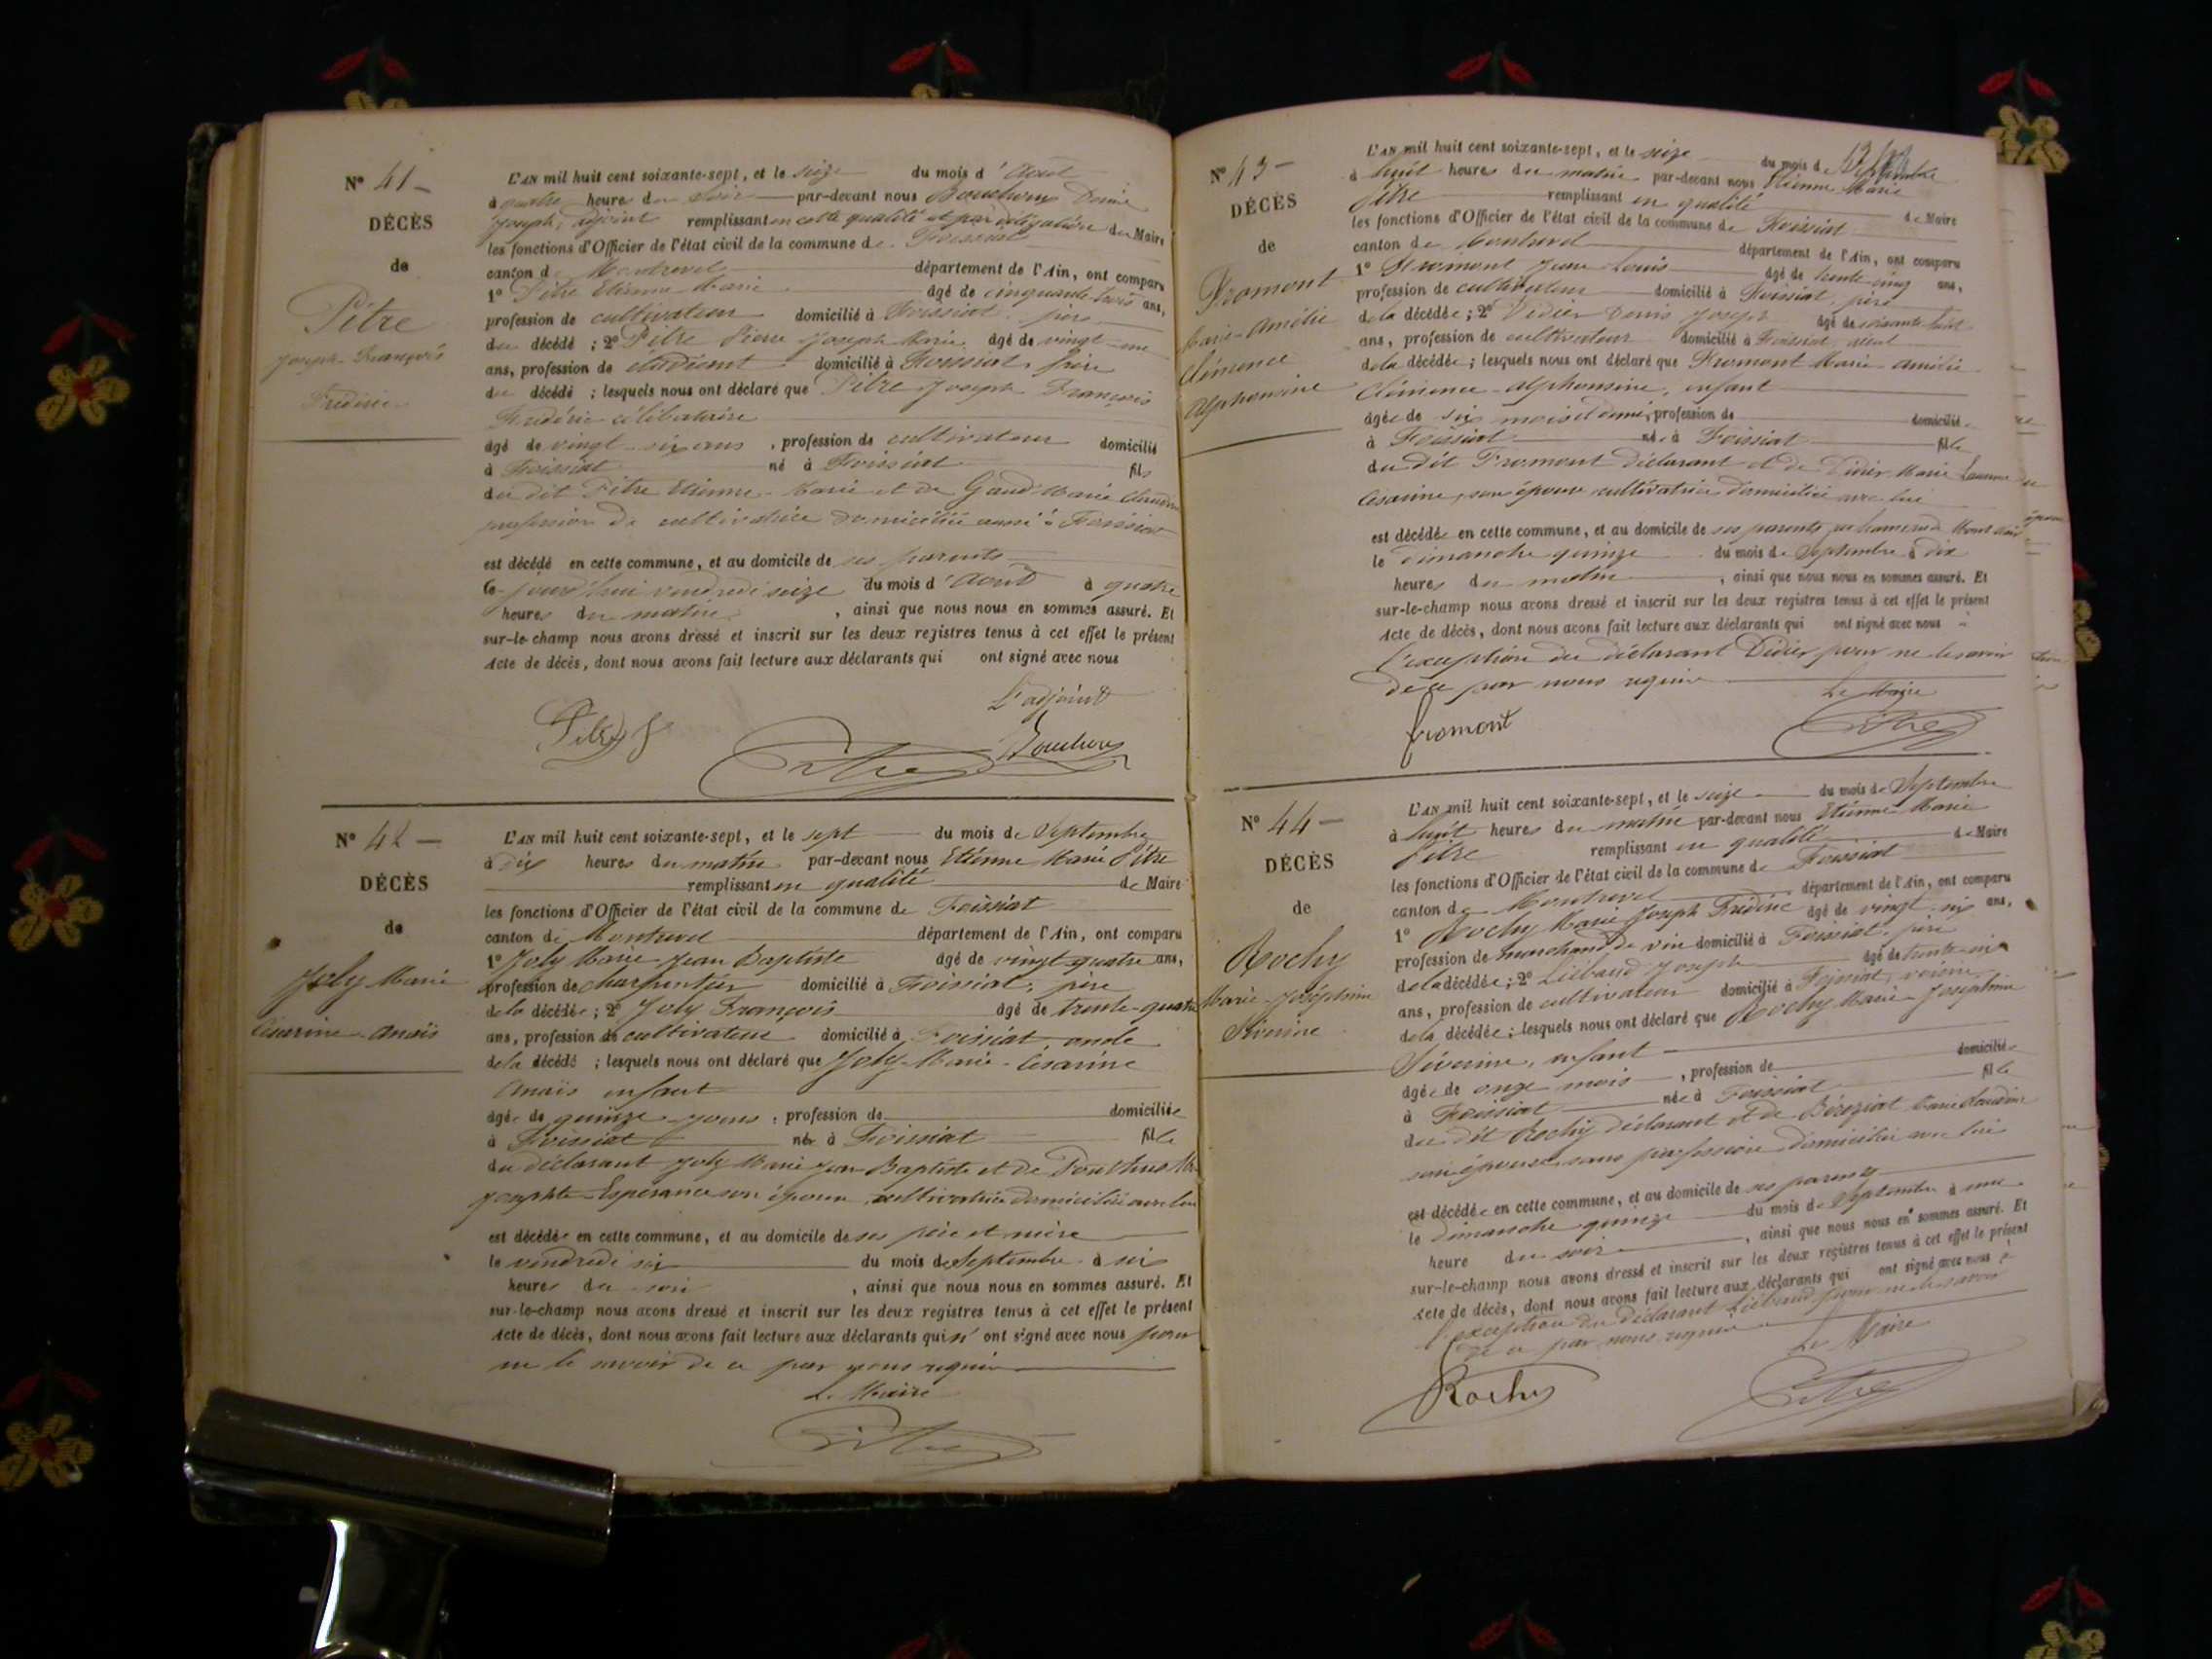 N° 41 —
DÉCÈS
de
Pitre
Joseph-François
Frédéric
L'AN mil huit cent soixante-sept, et le seize du mois d'Août
à quatre heures du soir par-devant nous Bouchoux Denis
Joseph, adjoint remplissant en cette qualité et par délégation du Maire
les fonctions d'Officier de l'état civil de la commune de Foissiat
canton de Montrevel département de l'Ain, ont comparu
1° Pitre Etienne-Marie âgé de cinquante-trois ans,
profession de cultivateur domicilié à Foissiat, père
du décédé ; 2° Pitre Pierre Joseph Marie âgé de vingt-un
ans, profession de étudiant domicilié à Foissiat, frère
du décédé ; lesquels nous ont déclaré que Pitre Joseph François
Frédéric célibataire
âgé de vingt-six ans, profession de cultivateur domicilié
à Foissiat né à Foissiat fils
du dit Pitre Etienne-Marie et de Gaud Marie Claudine
profession de cultivatrice domiciliée aussi à Foissiat
est décédé en cette commune, et au domicile de ses parents
ce jourd'hui vendredi seize du mois d'Août à quatre
heures du matin, ainsi que nous nous en sommes assuré. Et
sur-le-champ nous avons dressé et inscrit sur les deux registres tenus à cet effet le présent
Acte de décès, dont nous avons fait lecture aux déclarants qui ont signé avec nous
L'adjoint
Pitre Bouchoux
Pitre
N° 42 —
DÉCÈS
de
Joly Marie
Césarine-Anaïs
L'AN mil huit cent soixante-sept, et le sept du mois de Septembre
à dix heures du matin par-devant nous Etienne Marie Pitre
remplissant en qualité de Maire
les fonctions d'Officier de l'état civil de la commune de Foissiat
canton de Montrevel département de l'Ain, ont comparu
1° Joly Marie Jean Baptiste âgé de vingt-quatre ans,
profession de charpentier domicilié à Foissiat, père
de la décédée ; 2° Joly François âgé de trente-quatre
ans, profession de cultivateur domicilié à Foissiat oncle
de la décédé ; lesquels nous ont déclaré que Joly Marie-Césarine
Anaïs enfant
âgée de quinze jours, profession de domiciliée
à Foissiat née à Foissiat fille
du déclarant Joly Marie Jean Baptiste et de
Josephte-Esperance son épouse cultivatrice domiciliée avec lui
est décédée en cette commune, et au domicile de ses père et mère
le vendredi six du mois de Septembre à six
heures du soir, ainsi que nous nous en sommes assuré. Et
sur-le-champ nous avons dressé et inscrit sur les deux registres tenus à cet effet le présent
Acte de décès, dont nous avons fait lecture aux déclarants qui n'ont signé avec nous pour
ne le savoir de ce par nous requis
Le Maire
Pitre
N° 43 —
DÉCÈS
de
Fromont
Marie-Amélie
Clémence
Alphonsine
L'AN mil huit cent soixante-sept, et le seize du mois de Septembre
à huit heures du matin par-devant nous Etienne Marie
Pitre remplissant en qualité de Maire
les fonctions d'Officier de l'état civil de la commune de Foissiat
canton de Montrevel département de l'Ain, ont comparu
1° Fromont Jean-Louis âgé de trente-cinq ans,
profession de cultivateur domicilié à Foissiat, père
de la décédée ; 2° Didier Denis Joseph âgé de soixante-huit
ans, profession de cultivateur domicilié à Foissiat, aïeul
de la décédée ; lesquels nous ont déclaré que Fromont Marie Amélie
Clémence-Alphonsine, enfant
âgée de six mois et demi, profession de domiciliée
à Foissiat née à Foissiat fille
du dit Fromont déclarant et de Didier Marie
Césarine, son épouse cultivatrice domiciliée avec lui
est décédée en cette commune, et au domicile de ses parents au hameau de
le dimanche quinze du mois de Septembre à dix
heures du matin, ainsi que nous nous en sommes assuré. Et
sur-le-champ nous avons dressé et inscrit sur les deux registres tenus à cet effet le présent
Acte de décès, dont nous avons fait lecture aux déclarants qui ont signé avec nous à
l'exception du déclarant Didier pour ne le savoir
de ce par nous requis
Le Maire
fromont Pitre
N° 44 —
DÉCÈS
de
Rochy
Marie-Joséphine
Séverine
L'AN mil huit cent soixante-sept, et le seize du mois de Septembre
à huit heures du matin par-devant nous Etienne Marie
Pitre remplissant en qualité de Maire
les fonctions d'Officier de l'état civil de la commune de Foissiat
canton de Montrevel département de l'Ain, ont comparu
1° Rochy Marie Joseph Frédéric âgé de vingt-six ans,
profession de marchand de vin domicilié à Foissiat, père
de la décédée ; 2° Liébaud Joseph âgé de trente-six
ans, profession de cultivateur domicilié à Foissiat, voisin
de la décédée ; lesquels nous ont déclaré que Rochy Marie-Joséphine
Séverine, enfant
âgée de onze mois, profession de domiciliée
à Foissiat née à Foissiat fille
du dit Rochy déclarant et de Béréziat Marie Claudine
son épouse sans profession domiciliée avec lui
est décédée en cette commune, et au domicile de ses parents
le dimanche quinze du mois de Septembre à une
heure du soir, ainsi que nous nous en sommes assuré. Et
sur-le-champ nous avons dressé et inscrit sur les deux registres tenus à cet effet le présent
Acte de décès, dont nous avons fait lecture aux déclarants qui ont signé avec nous à
l'exception du déclarant Liébaud pour ne le savoir
de ce par nous requis
Le Maire
Rochy Pitre